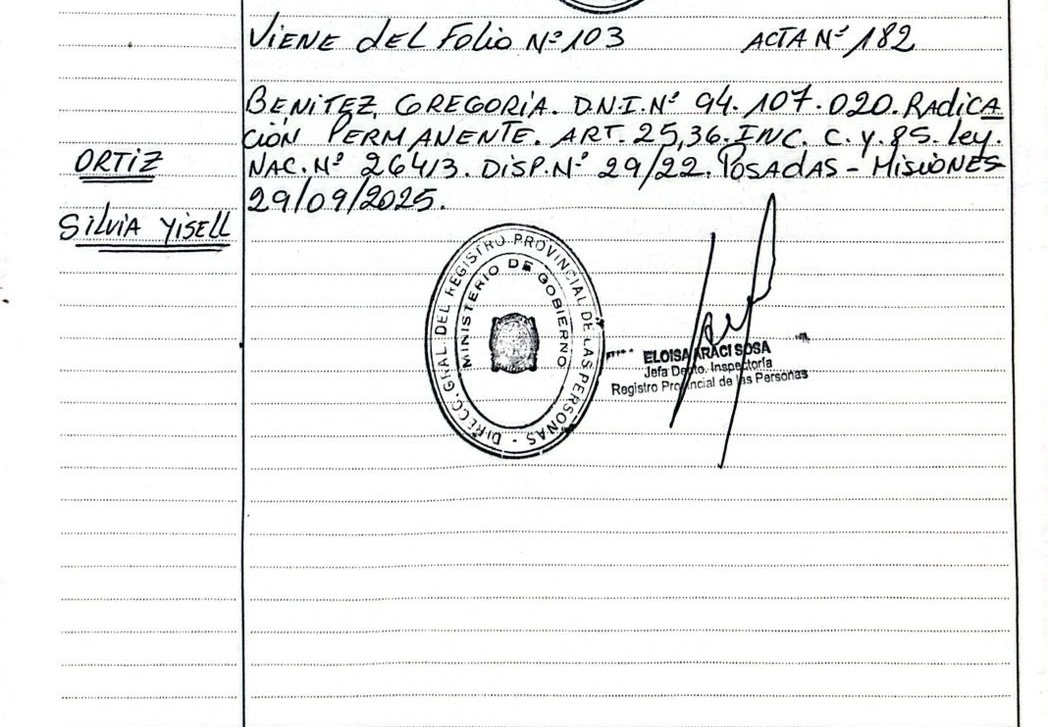 VIENE DEL FOLIO Nº 103 ACTA Nº 182
BENITEZ, GREGORIA. D.N.I. Nº 94.107.020. RADICA
CIÓN PERMANENTE. ART. 25,36. INC. C. y. 85. ley.
NAC. Nº 26413. DISP. Nº 29/22. POSADAS - MISIONES
29/09/2025.
ORTIZ
SILVIA YISELL
DIRECC. GRAL. DEL REGISTRO PROVINCIAL DE LAS PERSONAS -
MINISTERIO DE GOBIERNO
ELOISA ARACI SOSA
Jefa Depto. Inspectoría
Registro Provincial de las Personas